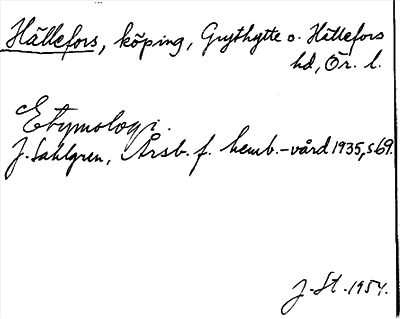 Hällefors, köping, Grythytte o. Hällefors
hd, Ör. l.
Etymologi.
J. Sahlgren, Årsb. f. hemb.-vård 1935, s 69.
J. St. 1954.